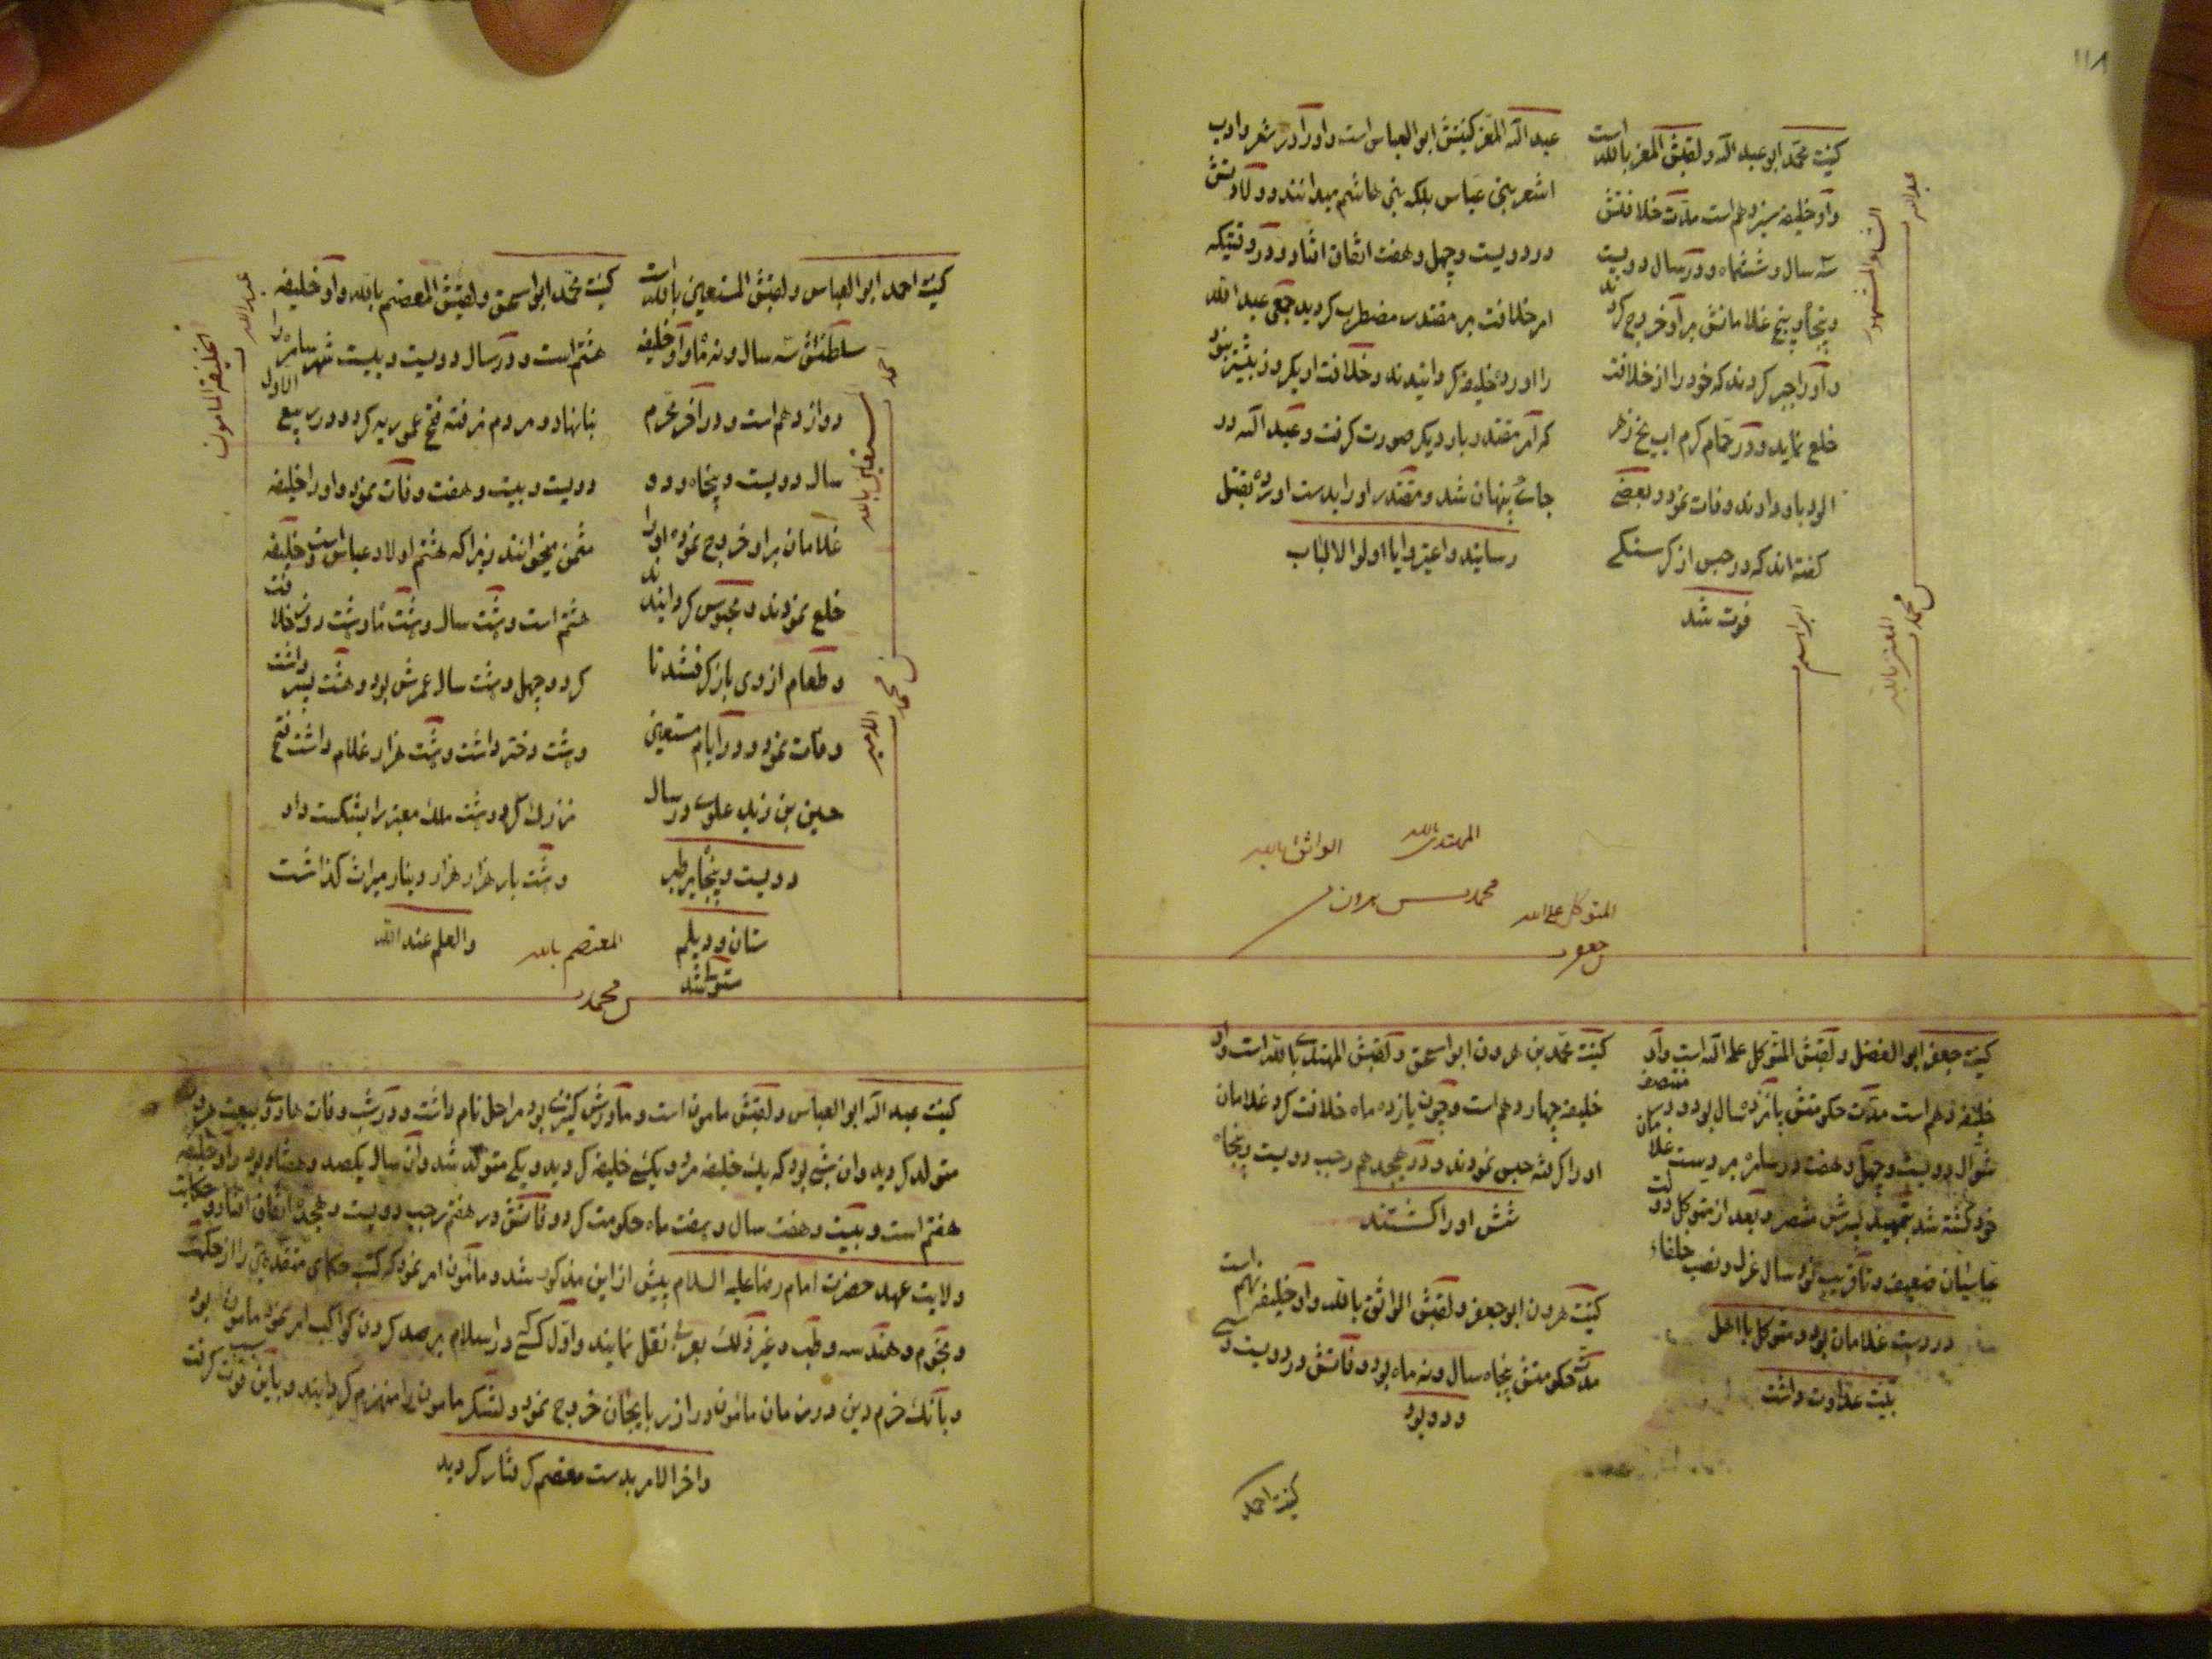 ١١٨
کنیت محمد ابو عبد الله و لقبش المعز بالله است
و او خلیفه سیزدهم است مدّت خلافتش
سه سال و ششماه و در سال دویست
و پنجاه و پنج غلامانش بر او خروج کردند
و او را جبر کردند که خود را از خلافت
خلع نماید و در حمّام کرم اب یخ زهر
الود باو دادند وفات نمود و بعضے
کفته اند که در حبس از کرسنکے
فوت شد
عبد الله المعز کنیتش ابو العباس است و او را در شعر و ادب
اشعر بنی عباس بلکه بنی هاشم میدانند و ولادتش
در دویست و چهل و هفت اتفاق افتاد و در وقتیکه
امر خلافت بر مقتدر مضطرب کردید جمعی عبد الله
را اورده خلیفه کردانیدند و خلافت او یکروز بیشتر نبود
که امر مقتدر بار دیکر صورت کرفت و عبد الله در
جائے پنهان شد و مقتدر او را بدست اورده بقتل
رسانید واعتبروا یا اولوا الالباب
عبد الله
الشاعر المشهور
بن محمد
المعز بالله
ابراهیم
المهتدی بالله
الواثق بالله
محمد بن هرون
المتوکل علی الله
بن جعفر
کنیت جعفر ابو الفضل و لقبش المتوکل علی الله است و او
خلیفه دهم است مدّت حکومتش پانزده سال بود و در منتصف
شوال دویست و چهل و هفت در سامره بر دست غلامان
خود کشته شد بتمهید پسرش منتصر و بعد از متوکل دولت
عباسیان ضعیف و تا قریب نود سال عزل و نصب خلفاء
در دست غلامان بود و متوکل با اهل
بیت عداوت داشت
کنیت محمد بن هرون ابو اسحق و لقبش المهتدے بالله است و او
خلیفه چهاردهم است و چون یازده ماه خلافت کرد غلامان
او را کرفته حبس نمودند و در هجدهم رجب دویست و پنجاه
شش او را کشتند
کنیت هرون ابو جعفر و لقبش الواثق بالله و او خلیفه نهم است
مدّت حکومتش پنجاه سال و نه ماه بود و وفاتش در دویست و سے
و دو بود
کنیت احمد
کنیت احمد ابو العباس و لقبش المستعین بالله است
سلطنتش سه سال و نه ماه و او خلیفه
دوازدهم است و در آخر محرم
سال دویست و پنجاه و دو
غلامان بر او خروج نموده او را
خلع نمودند و محبوس کردانیدند
و طعام از وی باز کرفتند تا
وفات نمود و در ایام مستعین
حسین بن زید علوے در سال
دویست و پنجاه بر طبر
ستان و دیلم
مستولی شد
احمد
المستعین بالله
بن محمد
الامیر
کنیت محمد ابو اسحق و لقبش المعتصم بالله و او خلیفه
هشتم است و در سال دویست و بیست شهر سامره را
بنا نهاد و مردم نرفته فتح عموریه کرد و در ربیع الاول
دویست و بیست و هفت وفات نمود و او را خلیفه
مثمن میخوانند زیرا که هشتم اولاد عباس است و خلیفه
هشتم است و هشت سال و هشت ماه و هشت روز خلافت
کرد و چهل و هشت سال عمرش بود و هشت پسر داشت
و هشت دختر داشت و هشت هزار غلام داشت فتح
بزرك کرد و هشت ملك معتبر را بشکست داد
و هشت بار هزار هزار دینار میراث کذاشت
والعلم عند الله
عبد الله
الخلیفة المامون
المعتصم بالله
بن محمد
کنیت عبد الله ابو العباس و لقبش مامون است و مادرش کنیزے بود مراجل نام داشت و در شب وفات هادی و بیعت هرون
متولد کردید و ان شبی بود که یك خلیفه مرد و یکے خلیفه کردید و یکے متولد شد و ان سال یکصد و هفتاد بود و او خلیفه
هفتم است و بیست و هفت سال و هفت ماه حکومت کرد و وفاتش در هفتم رجب دویست و هجده اتفاق افتاد و حکایت
ولایت عهد حضرت امام رضا علیه السلام پیش از این مذکور شد و مامون امر نمود که کتب حکمای متقدمین را از حکمت
و نجوم و هندسه و طب و غیر ذلك بعربی نقل نمایند و اول کسے که در اسلام برصد کردن کواکب امر نمود مامون بود
و بابك خرم دین در زمان مامون در اذربایجان خروج نمود و لشکر مامون را منهزم کردانید و باین سبب قوت کرفت
و اخر الامر بدست معتصم کرفتار کردید